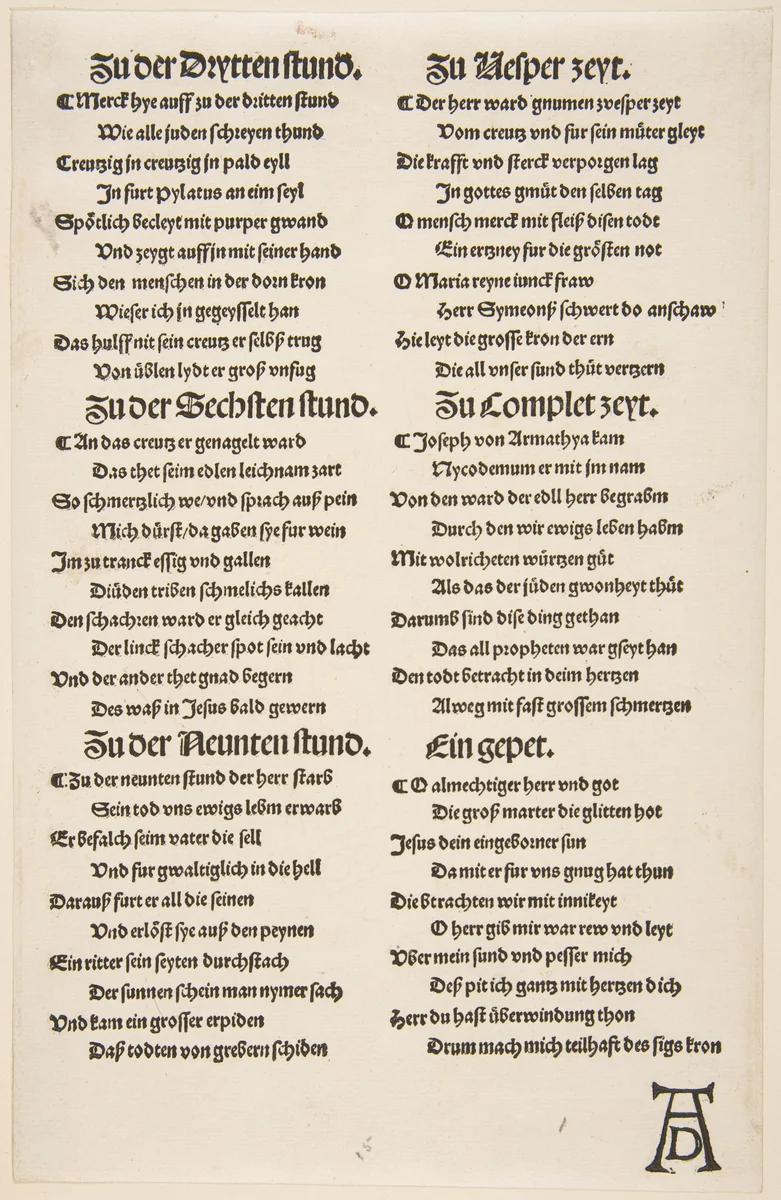 Zu der Drytten stund.
¶ Merck hye auff zu der dritten stund
Wie alle juden schreyen thund
Creutzig jn creutzig jn pald eyll
Jn furt pylatus an eim seyl
Spötlich becleyt mit purper gwand
Vnd zeygt auff jn mit seiner hand
Sich den menschen in der dorn kron
Wieser ich jn gegeysselt han
Das hulff nit sein creutz er selbß trug
Von üblen lydt er groß vnfug
Zu der Sechsten stund.
¶ An das creutz er genagelt ward
Das thet seim edlen leichnam zart
So schmertzlich we/vnd sprach auß pein
Mich dürst/da gaben sye fur wein
Jm zu tranck essig vnd gallen
Diüden triben schmelichs kallen
Den schachren ward er gleich geacht
Der linck schacher spot sein vnd lacht
Vnd der ander thet gnad begern
Des waß in Jesus bald gewern
Zu der Neunten stund.
¶ Zu der neunten stund der herr starb
Sein tod vns ewigs lebm erwarb
Er befalch seim vater die sell
Vnd fur gwaltiglich in die hell
Darauß furt er all die seinen
Vnd erlöst sye auß den peynen
Ein ritter sein seyten durchstach
Der sunnen schein man nymer sach
Vnd kam ein grosser erpiden
Daß todten von grebern schiden
Zu Vesper zeyt.
¶ Der herr ward gnumen zvesper zeyt
Vom creutz vnd fur sein müter gleyt
Die krafft vnd sterck verporgen lag
Jn gottes gmüt den selben tag
O mensch merck mit fleiß disen todt
Ein ertzney fur die grösten not
O Maria reyne iunckfraw
Herr Symeonß schwert do anschaw
Hie leyt die grosse kron der ern
Die all vnser sund thüt vertzern
Zu Complet zeyt.
¶ Joseph von Armathya kam
Nycodemum er mit jm nam
Von den ward der edll herr begrabm
Durch den wir ewigs leben habm
Mit wolricheten würtzen güt
Als das der jüden gwonheyt thüt
Darumb sind dise ding gethan
Das all propheten war gseyt han
Den todt betracht in deim hertzen
Alweg mit fast grossem schmertzen
Ein gepet.
¶ O almechtiger herr vnd got
Die groß marter die glitten hot
Jesus dein eingeborner sun
Da mit er fur vns gnug hat thun
Die btrachten wir mit innikeyt
O herr gib mir war rew vnd leyt
Vber mein sund vnd pesser mich
Deß pit ich gantz mit hertzen dich
Herr du hast überwindung thon
Drum mach mich teilhaft des sigs kron
AD